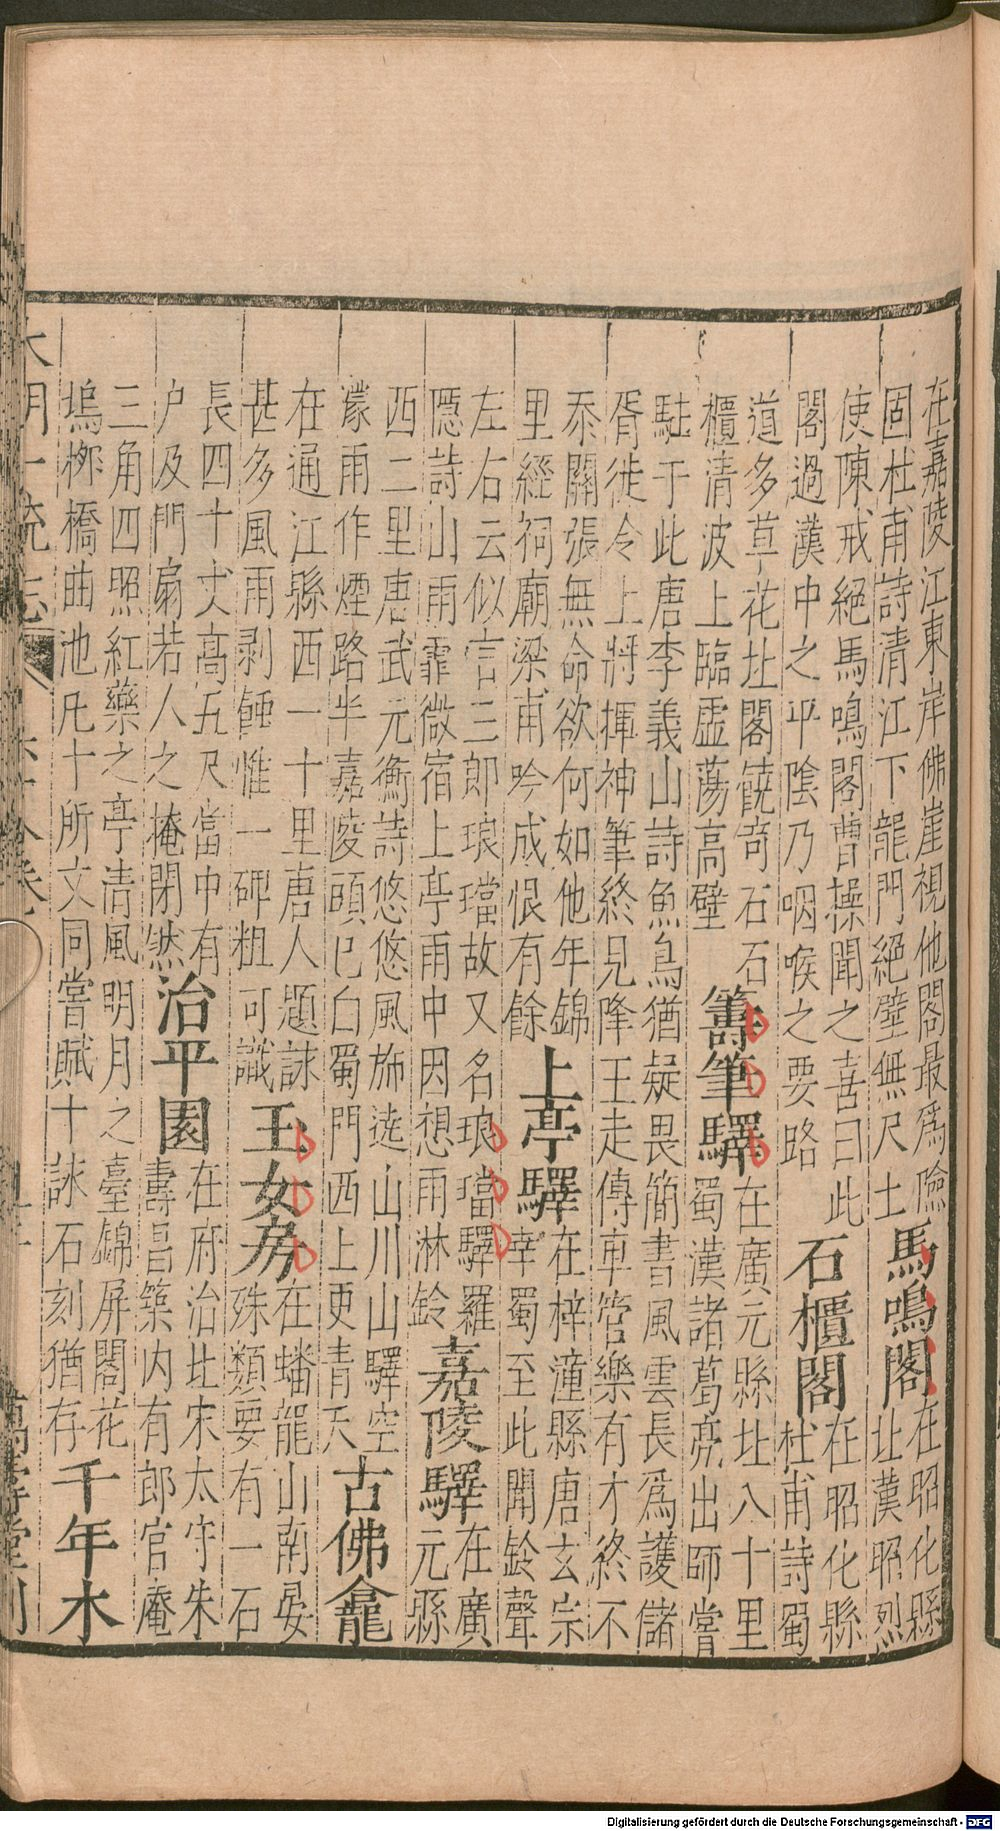 在嘉陵江東岸佛崖視他閣最爲險
固杜甫詩清江下龍門絕壁無尺土
馬鳴閣
在昭化縣
北漢昭烈
使陳戒絕馬鳴閣曹操聞之喜曰此
閣過漢中之平陰乃咽喉之要路
石櫃閣
在昭化縣
杜甫詩蜀
道多草花北閣饒奇石石
櫃清波上臨虛蕩高壁
籌筆驛
在廣元縣北八十里
蜀漢諸葛亮出師嘗
駐于此唐李義山詩魚鳥猶疑畏簡書風雲長爲護儲
胥徙令上將揮神筆終見降王走傳車管樂有才終不
忝關張無命欲何如他年錦
里經祠廟梁甫吟成恨有餘
上亭驛
在梓潼縣唐玄宗
幸蜀至此聞鈴聲
左右云似言三郎琅璫故又名琅璫驛羅
隱詩山雨霏微宿上亭雨中因想雨淋鈴
嘉陵驛
在廣
元縣
西二里唐武元衡詩悠悠風旆遶山川山驛空
濛雨作煙路半嘉陵頭已白蜀門西上更青天
古佛龕
在通江縣西一十里唐人題詠
甚多風雨剥蝕惟一碑粗可識
玉女房
在蟠龍山南晏
殊類要有一石
長四十丈高五尺當中有
户及門扇若人之掩閉然
治平園
在府治北宋太守朱
壽昌築内有郎官庵
三角四照紅藥之亭清風明月之臺錦屏閣花
塢柳橋曲池凡十所文同嘗賦十詠石刻猶存
千年木
大明一統志
萬壽堂刊
Digitalisierung gefördert durch die Deutsche Forschungsgemeinschaft - DFG